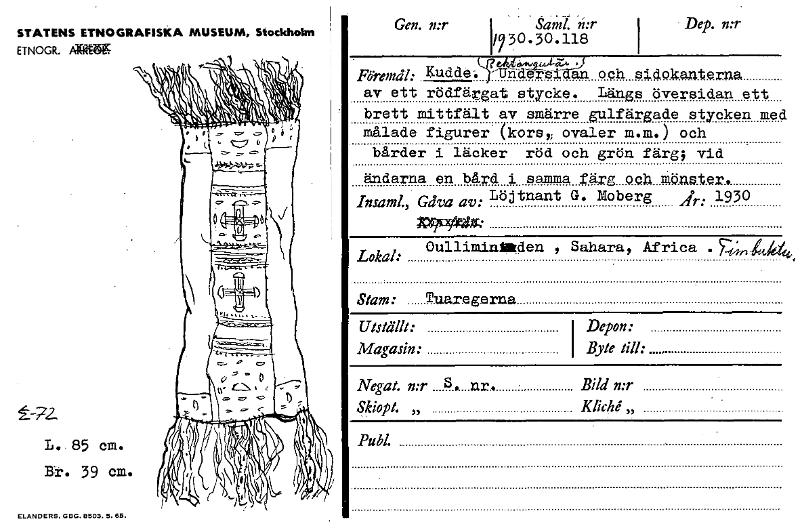 STATENS ETNOGRAFISKA MUSEUM, Stockholm
ETNOGR.
Σ-72
L. 85 cm.
Br. 39 cm.
ELANDERS, GBG. 8503. 5. 65.
Gen. n:r Saml. n:r Dep. n:r
1930.30.118
(Rektangulär.)
Föremål: Kudde. Undersidan och sidokanterna
av ett rödfärgat stycke. Längs översidan ett
brett mittfält av smärre gulfärgade stycken med
målade figurer (kors, ovaler m.m.) och
bårder i läcker röd och grön färg; vid
ändarna en bård i samma färg och mönster.
Insaml., Gåva av: Löjtnant G. Moberg År: 1930
Lokal: Oulliminden , Sahara, Africa . Timbuktu.
Stam: Tuaregerna
Utställt: Depon:
Magasin: Byte till:
Negat. n:r S. nr. Bild n:r
Skiopt. „ Kliché „
Publ.